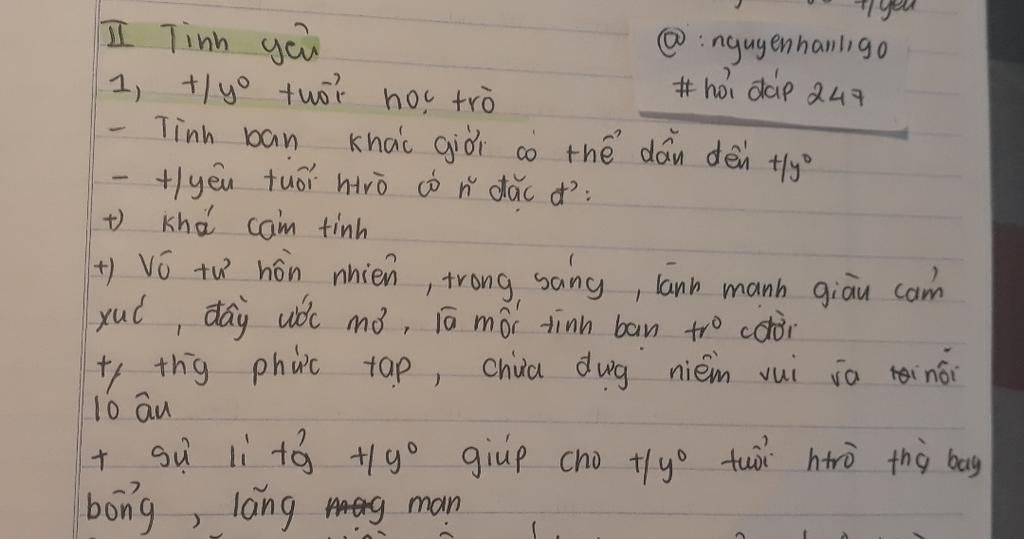 t/yêu
II Tình yêu
@ : nguyenhanh190
# hỏi đáp 247
1, t/yº tuổi học trò
- Tình bạn khác giới có thể dẫn đến t/yº
- t/yêu tuổi htrò có n~ đặc đ²:
+) Khá cảm tính
+) Vô tư hồn nhiên, trong sáng, lành mạnh giàu cảm
xuć, đầy ước mơ, là mối tình bạn trº cđời
+, thg phức tạp, chứa đựg niềm vui và nỗi
lo âu
+ Sự lí tg̉ t/yº giúp cho t/yº tuổi htrò thg̀ bay
bổng, lãng mạn